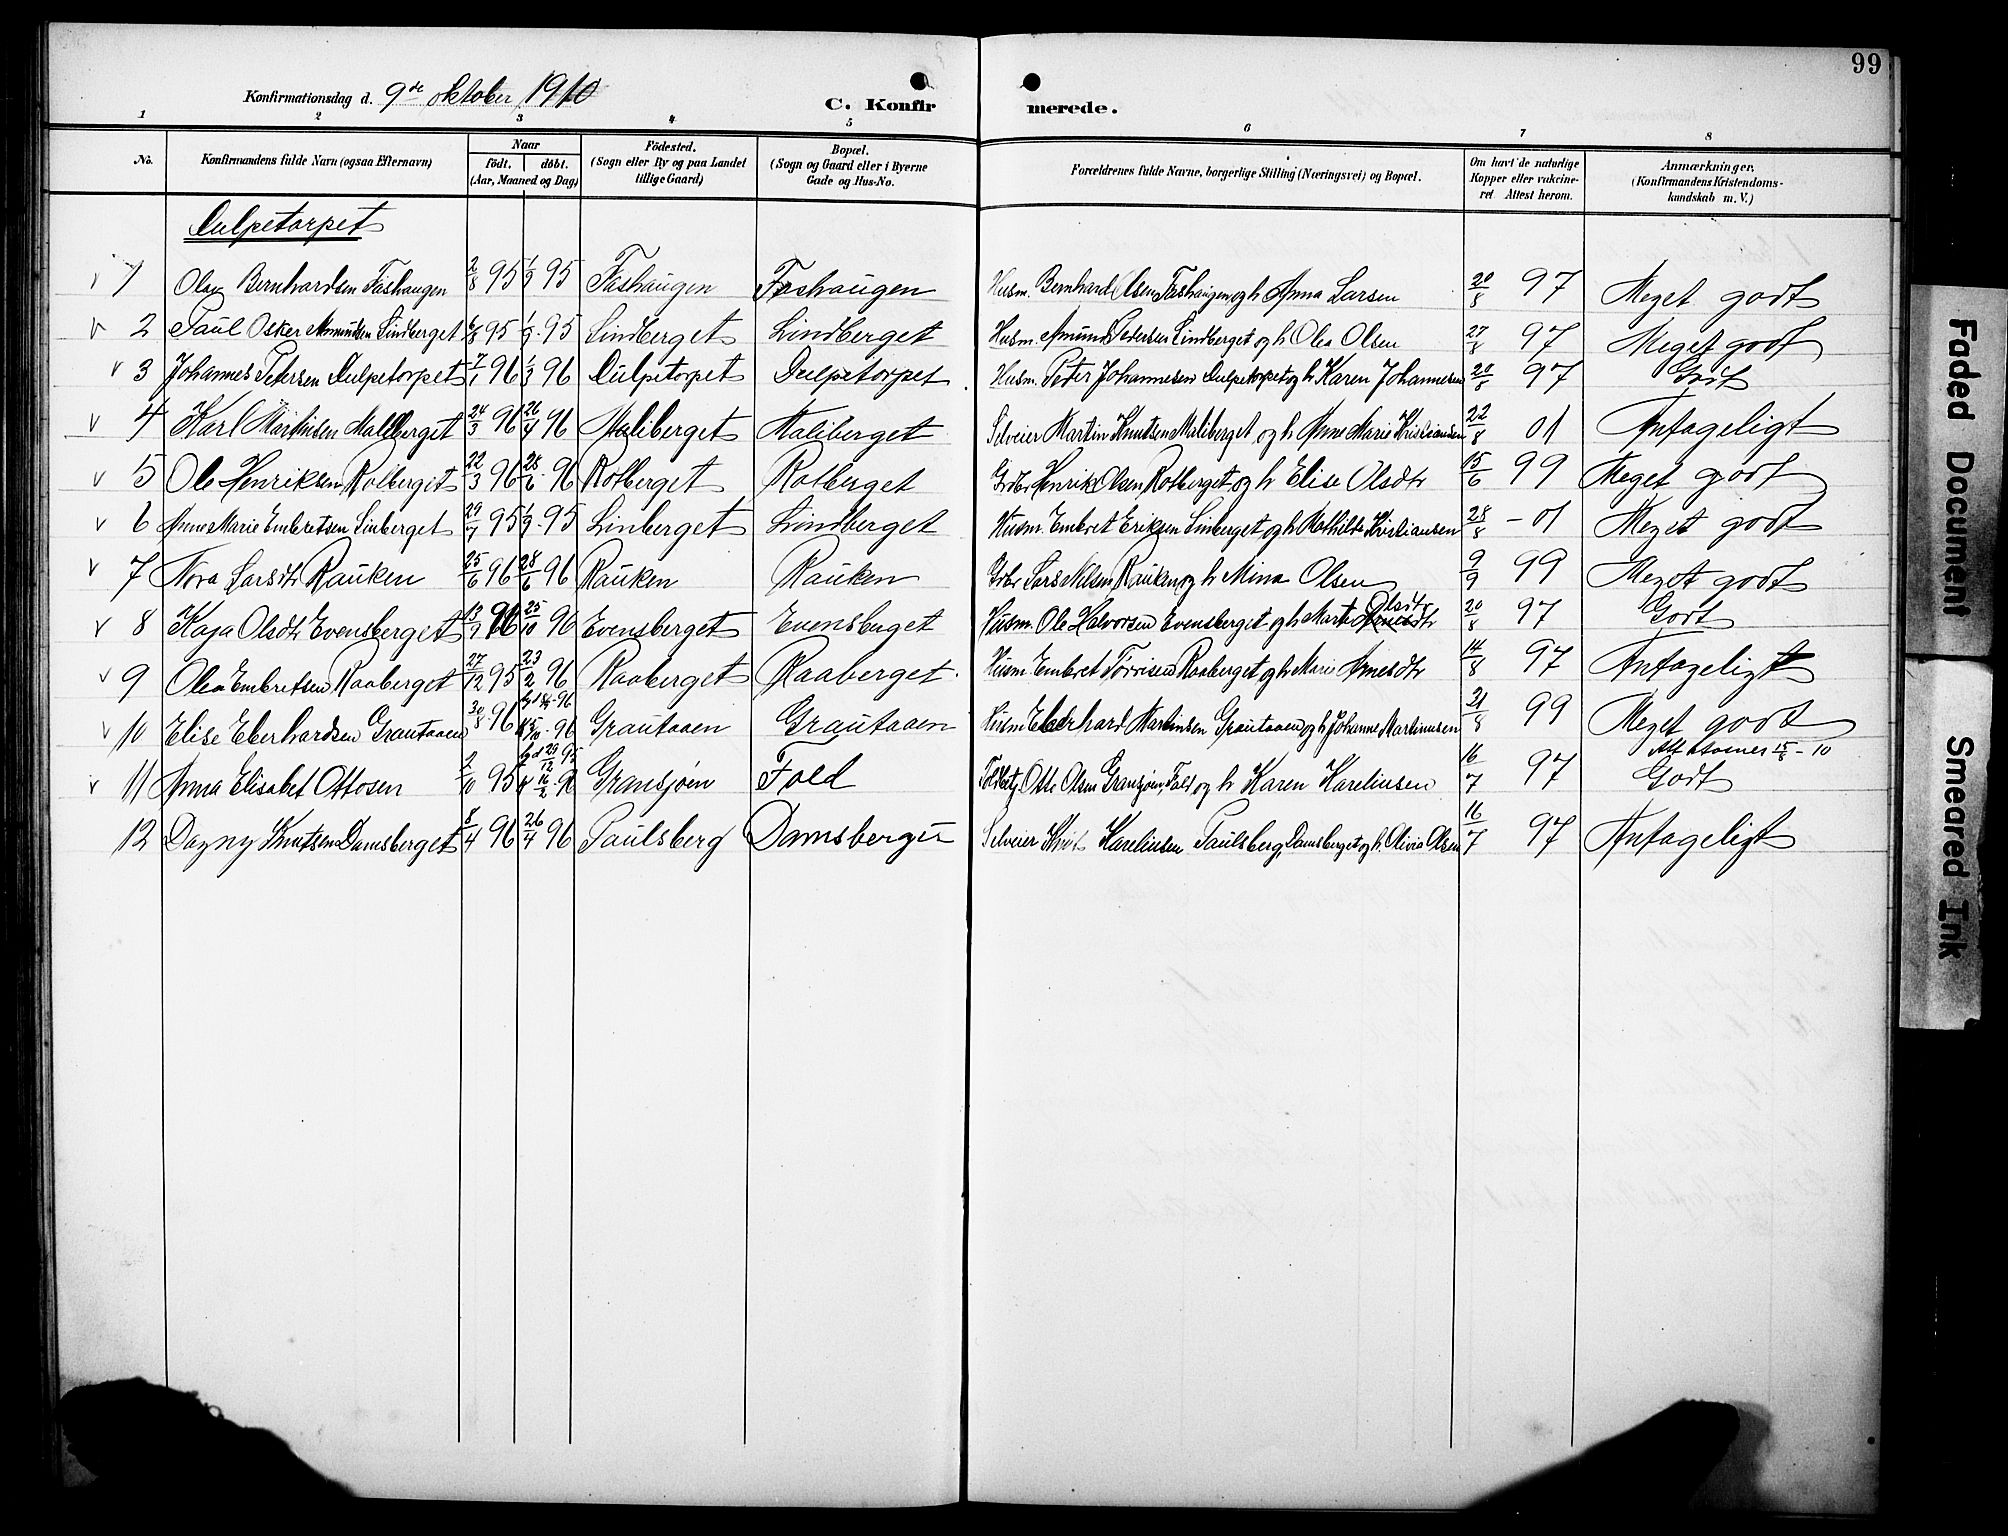 99
Konfirmationsdag d. 9de oktober 1910
C. Konfirmerede.
1 2 3 4 5 6 7 8
No. Konfirmandens fulde Navn (ogsaa Efternavn) Naar født. døbt. (Aar, Maaned og Dag) Fødested. (Sogn eller By og paa Landet tillige Gaard) Bopæl. (Sogn og Gaard eller i Byerne Gade og Hus-No. Forældrenes fulde Navne, borgerlige Stilling (Næringsvei) og Bopæl. Om havt de naturlige Kopper eller vakcineret Attest herom. Anmærkninger. (Konfirmandens Kristendomskundskab m. V.)
Dulpetorpet
1 Olav Bernhardsen Fashaugen 2/8 95 1/9 95 Fashaugen Fashaugen Husm. Bernhard Olsen Fashaugen og h Anna Larsen 20/8 97 Meget godt
2 Paul Osker Amundsen Lindberget 6/8 95 1/9 95 Lindberget Lindberget Husm. Amund Pedersen Lindberget og h Olea Olsen 27/8 97 Meget godt
3 Johannes Petersen Dulpetorpet 7/1 96 1/3 96 Dulpetorpet Dulpetorpet Husm. Peter Johannesen Dulpetorpet og h Karen Johannesen 20/8 97 Godt
4 Karl Martinsen Maliberget 24/3 96 26/4 96 Maliberget Maliberget Selveier Martin Knutsen Maliberget og h Anne Marie Kristiansen 22/8 01 Antageligt
5 Ole Henriksen Rotberget 22/3 96 28/6 96 Rotberget Rotberget Grbr. Henrik Olsen Rotberget og h Elise Olsdtr 15/6 99 Meget godt
6 Anne Marie Embretsen Linberget 29/7 95 1/9 95 Linberget Lindberget Husm. Embret Eriksen Linberget og h Mathilde Kristiansen 28/8 - 01 Meget godt
7 Nora Larsdtr Rauken 25/6 96 28/6 96 Rauken Rauken Grbr Lars Nilsen Rauken og h Mina Olsen 9/9 99 Meget godt
8 Kaja Olsdtr Evensberget 13/9 96 25/10 96 Evensberget Evensberget Husm. Ole Halvorsen Evensberget og h Marte Olsdtr 20/8 97 Godt
9 Olea Embretsen Raaberget 27/12 95 23/2 96 Raaberget Raaberget Husm Embret Torrisen Raaberget og h Marie Arnesdtr 14/8 97 Antageligt
10 Elise Eberhardsen Grautaaen 30/8 96 Grautaaen Grautaaen Husm Eberhard Martinsen Grautaaen og h Johanne Martinusen 21/8 99 Meget godt
11 Anna Elisabet Ottosen 2/10 95 Gransjøen Fold Otto Olsen Gransjøen, Fald og h Karen Karelinsen 16/7 97 Godt
12 Dagny Knutsen Damsberget 8/4 96 26/4 96 Paulsberg Damsberget Selveier Knut Karelinsen Paulsberg, Damsberget og h. Olivia Olsen 16/7 97 Antageligt
Faded Document
Smeared Ink